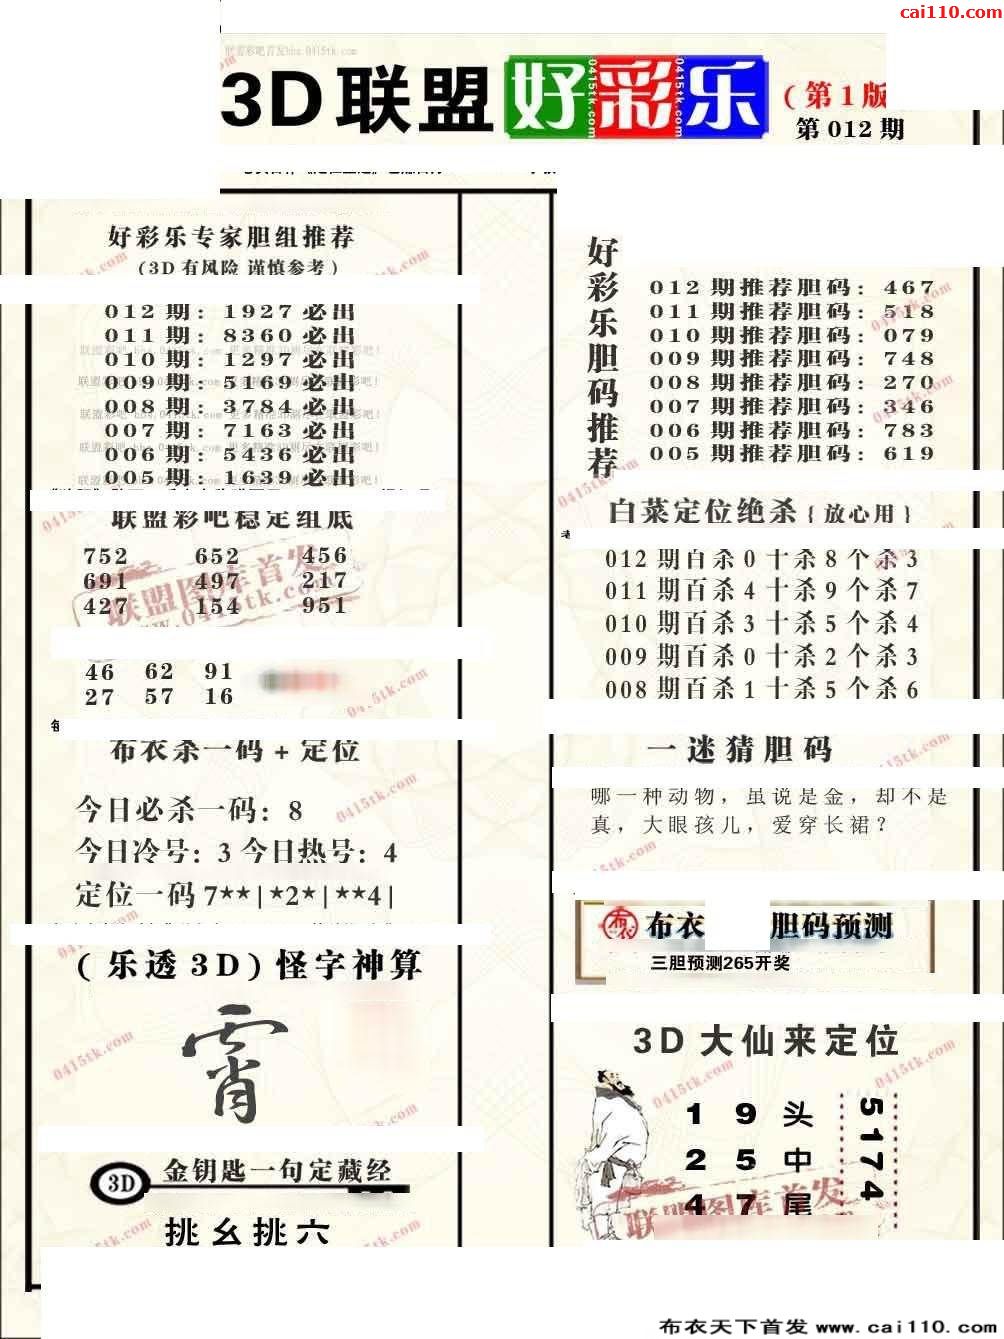 cai110.com
3D联盟好彩乐
(第1版
第012期
好彩乐专家胆组推荐
(3D有风险 谨慎参考)
012期: 1927必出
011期: 8360必出
010期: 1297必出
009期: 5169必出
008期: 3784必出
007期: 7163必出
006期: 5436必出
005期: 1639必出
联盟彩吧稳定组底
752 652 456
691 497 217
427 154 951
46 62 91
27 57 16
布衣杀一码+定位
今日必杀一码: 8
今日冷号: 3 今日热号: 4
定位一码7**|*2*|**4|
(乐透3D)怪字神算
霄
3D 金钥匙一句定藏经
挑幺挑六
好彩乐胆码推荐
012期推荐胆码: 467
011期推荐胆码: 518
010期推荐胆码: 079
009期推荐胆码: 748
008期推荐胆码: 270
007期推荐胆码: 346
006期推荐胆码: 783
005期推荐胆码: 619
白菜定位绝杀{放心用}
012期百杀0十杀8个杀3
011期百杀4十杀9个杀7
010期百杀3十杀5个杀4
009期百杀0十杀2个杀3
008期百杀1十杀5个杀6
一迷猜胆码
哪一种动物，虽说是金，却不是
真，大眼孩儿，爱穿长裙？
布衣 布衣 胆码预测
三胆预测265开奖
3D大仙来定位
1 9 头
2 5 中
4 7 尾
5174
联盟图库首发
0415tk.com
布衣天下首发 www.cai110.com